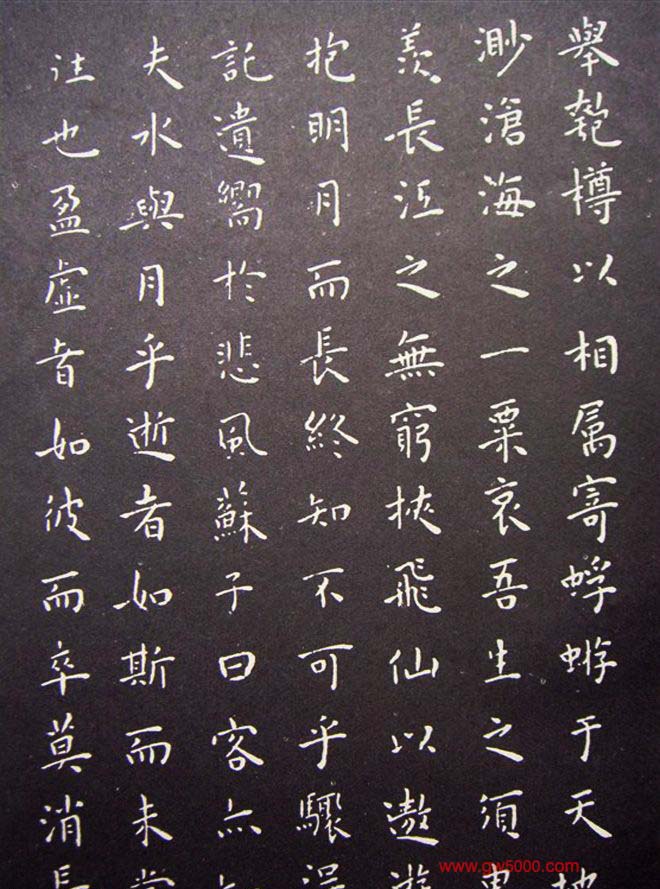 舉匏樽以相属寄蜉蝣于天地
渺滄海之一粟哀吾生之須臾
羨長江之無窮挾飛仙以遨遊
抱明月而長終知不可乎驟得
託遺響於悲風蘇子曰客亦
夫水與月乎逝者如斯而未嘗
往也盈虛者如彼而卒莫消長
www.gw5000.com